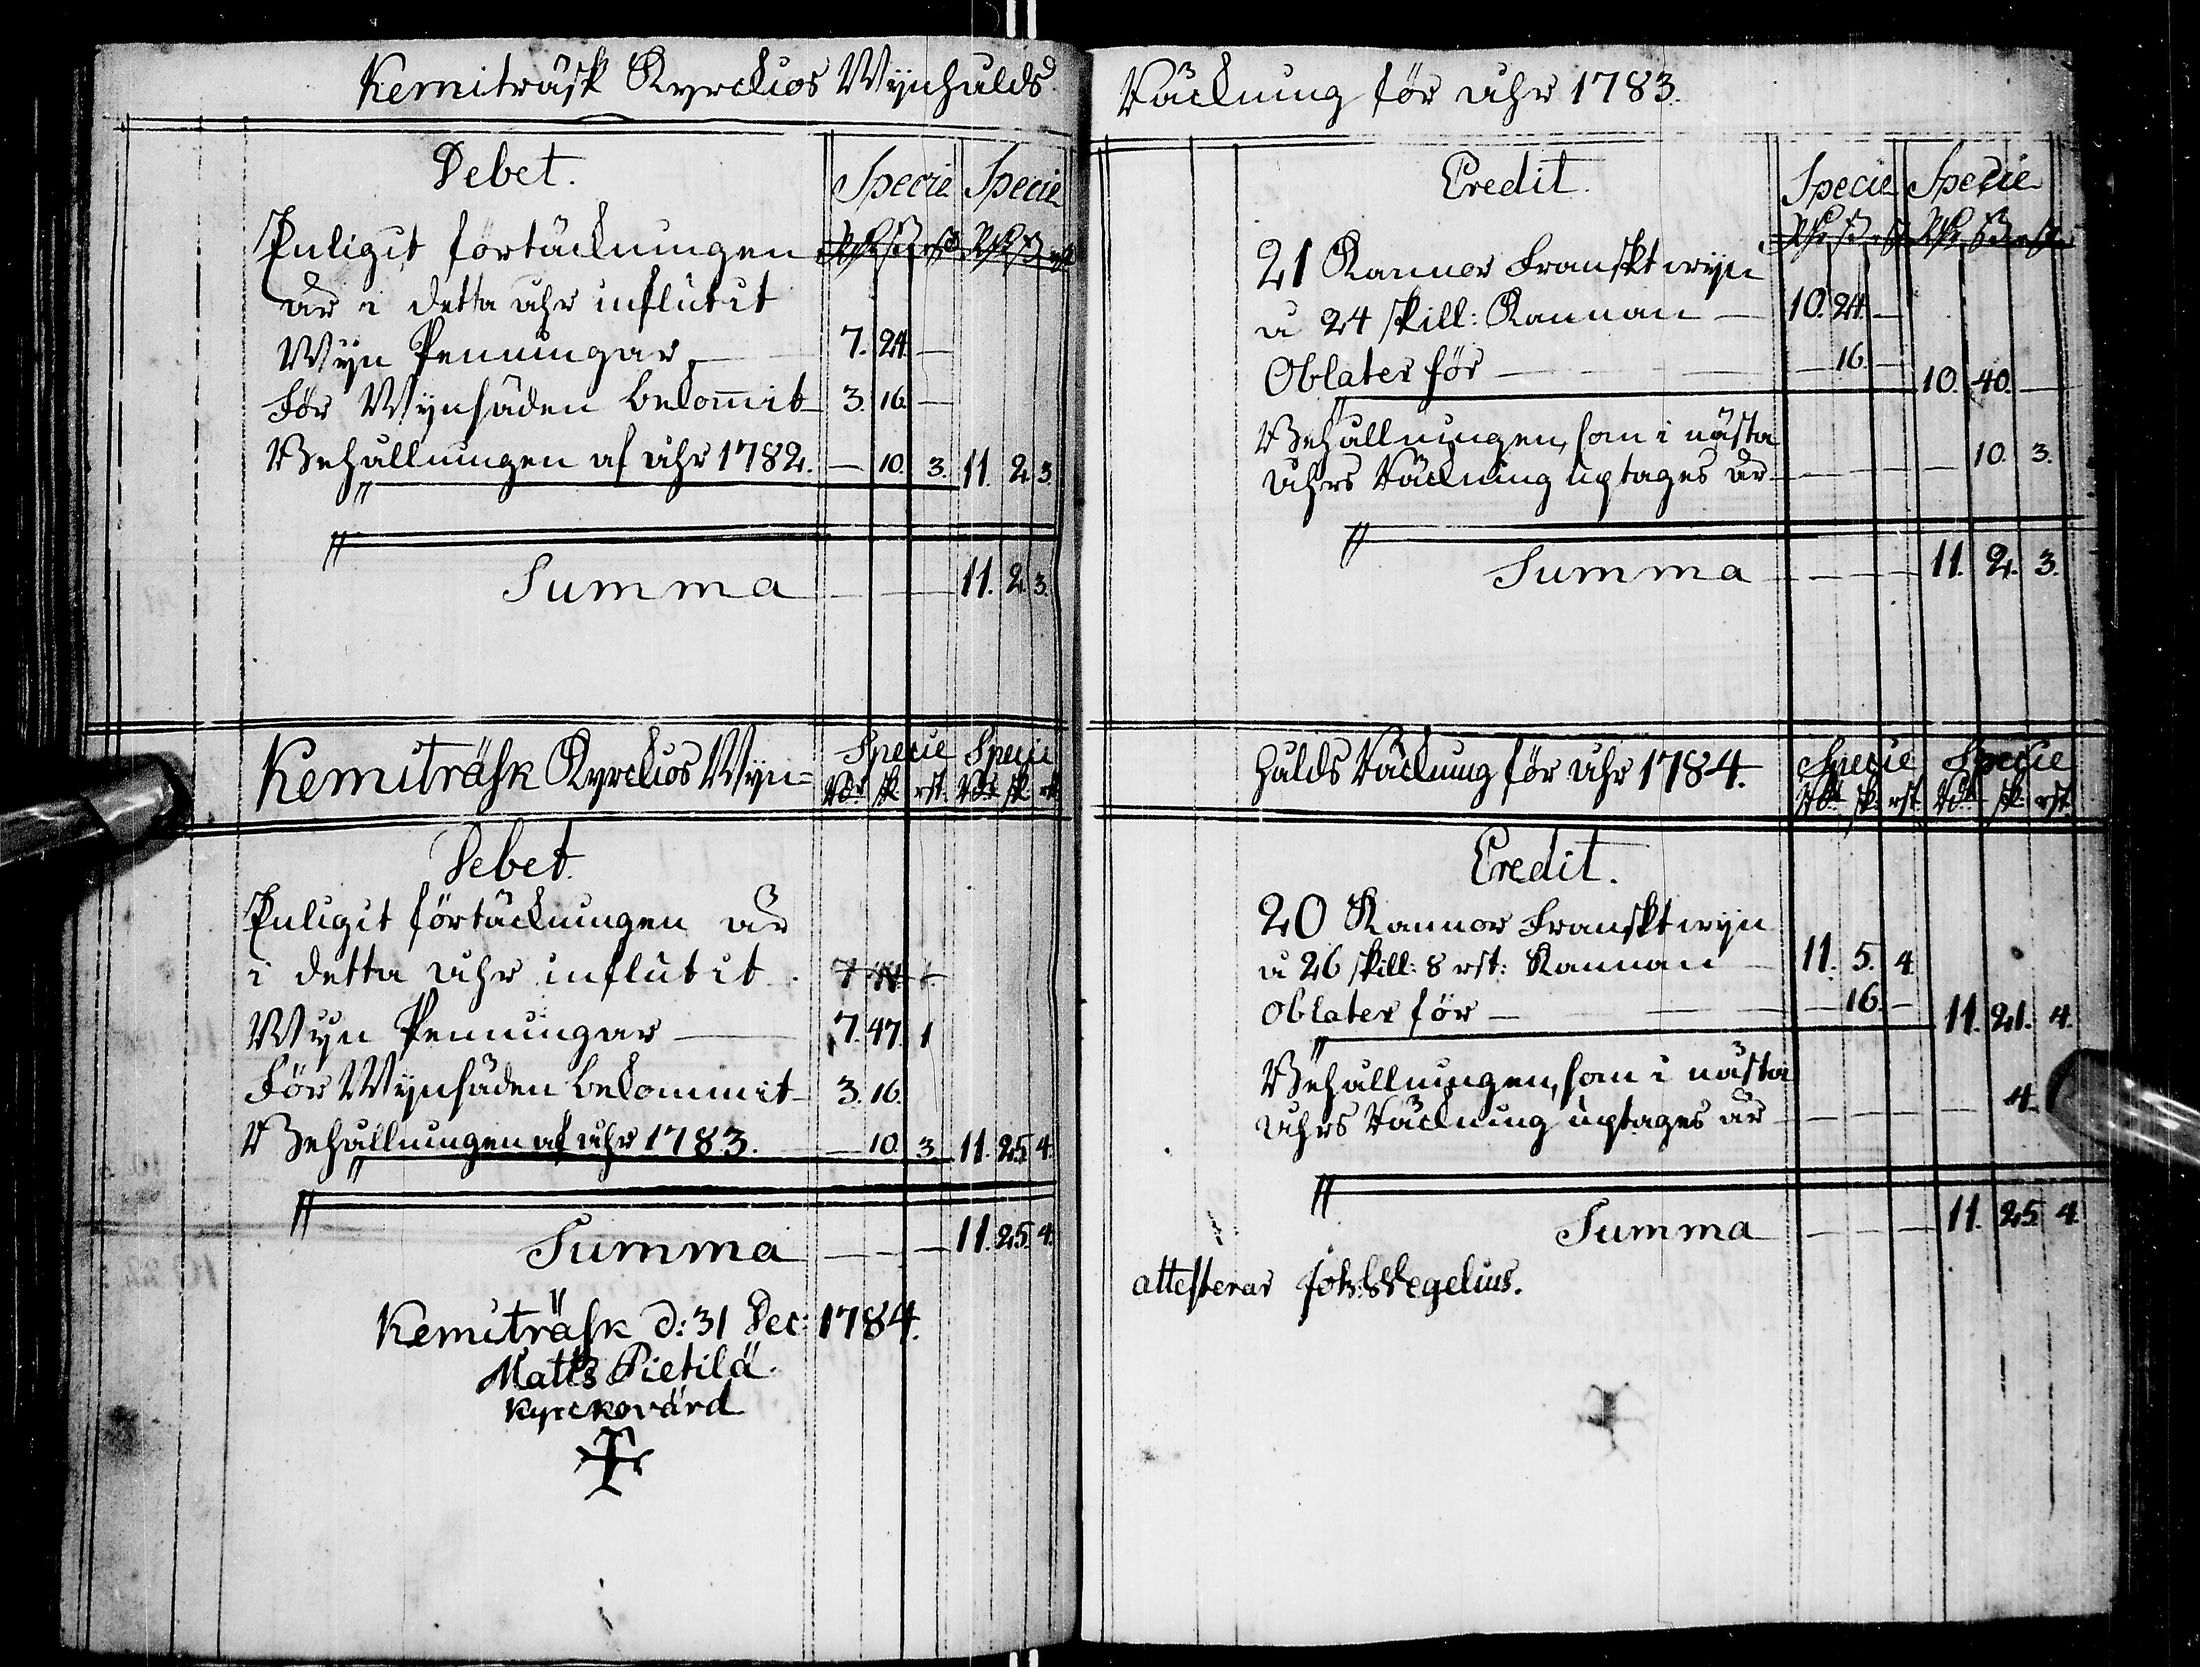 Kemiträsk Kyrckios Wijnhulds
Debet.
Specie Specie
Enligit förtäckningen
är i detta åhr influtit
Wijn Penningar — 7. 24. —
För Wijnsäden bekom̄it 3. 16. —
Behållningen af åhr 1782. — 10. 3. 11. 2. 3.
Summa — — — 11. 2. 3.
Kemiträsk Kyrckios Wijn=
Specie Specie
Rdr sk. rst. Rdr sk. rst
Debet.
Enligit förtäckningen är
i detta åhr influtit.
Wijn Penningar — 7. 47. 1
För Wijnsäden bekommit 3. 16.
Behållningen af åhr 1783. — 10. 3. 11. 25. 4.
Summa — — — 11. 25. 4.
Kemiträsk d: 31 Dec: 1784.
Matts Pietilä.
Kyrckovärd
Räckning för åhr 1783.
Credit.
Specie Specie
21 Kannor Franskt wijn
a 24 skill: Kannan — 10. 24. —
Oblater för — — 16. — 10. 40. —
Behållningen, som i nästa
åhrs Räckning uptages är — — — — 10. 3.
Summa — — — 11. 2. 3.
hulds Räckning för åhr 1784.
Specie Specie
Rdr sk. rst. Rdr sk. rst.
Credit.
20 Kannor Franskt wijn
a 26 skill: 8 rst: Kannan — 11. 5. 4
Oblater för — — 16. — 11. 21. 4.
Behållningen, som i nästa
åhrs Räckning uptages är — — — — 4.
Summa — — — 11. 25. 4.
attesterar Joh: Wegelius.